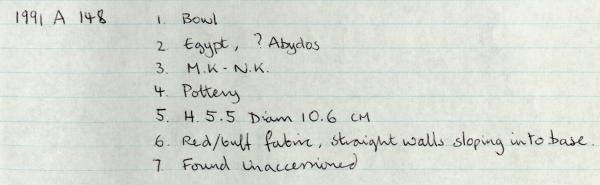 1991 A 148 1. Bowl
2 Egypt, ? Abydos
3. M.K - N.K.
4. Pottery
5. H. 5.5 Diam 10.6 CM
6. Red/buff fabric, straight walls sloping in to base.
7. Found unaccessioned